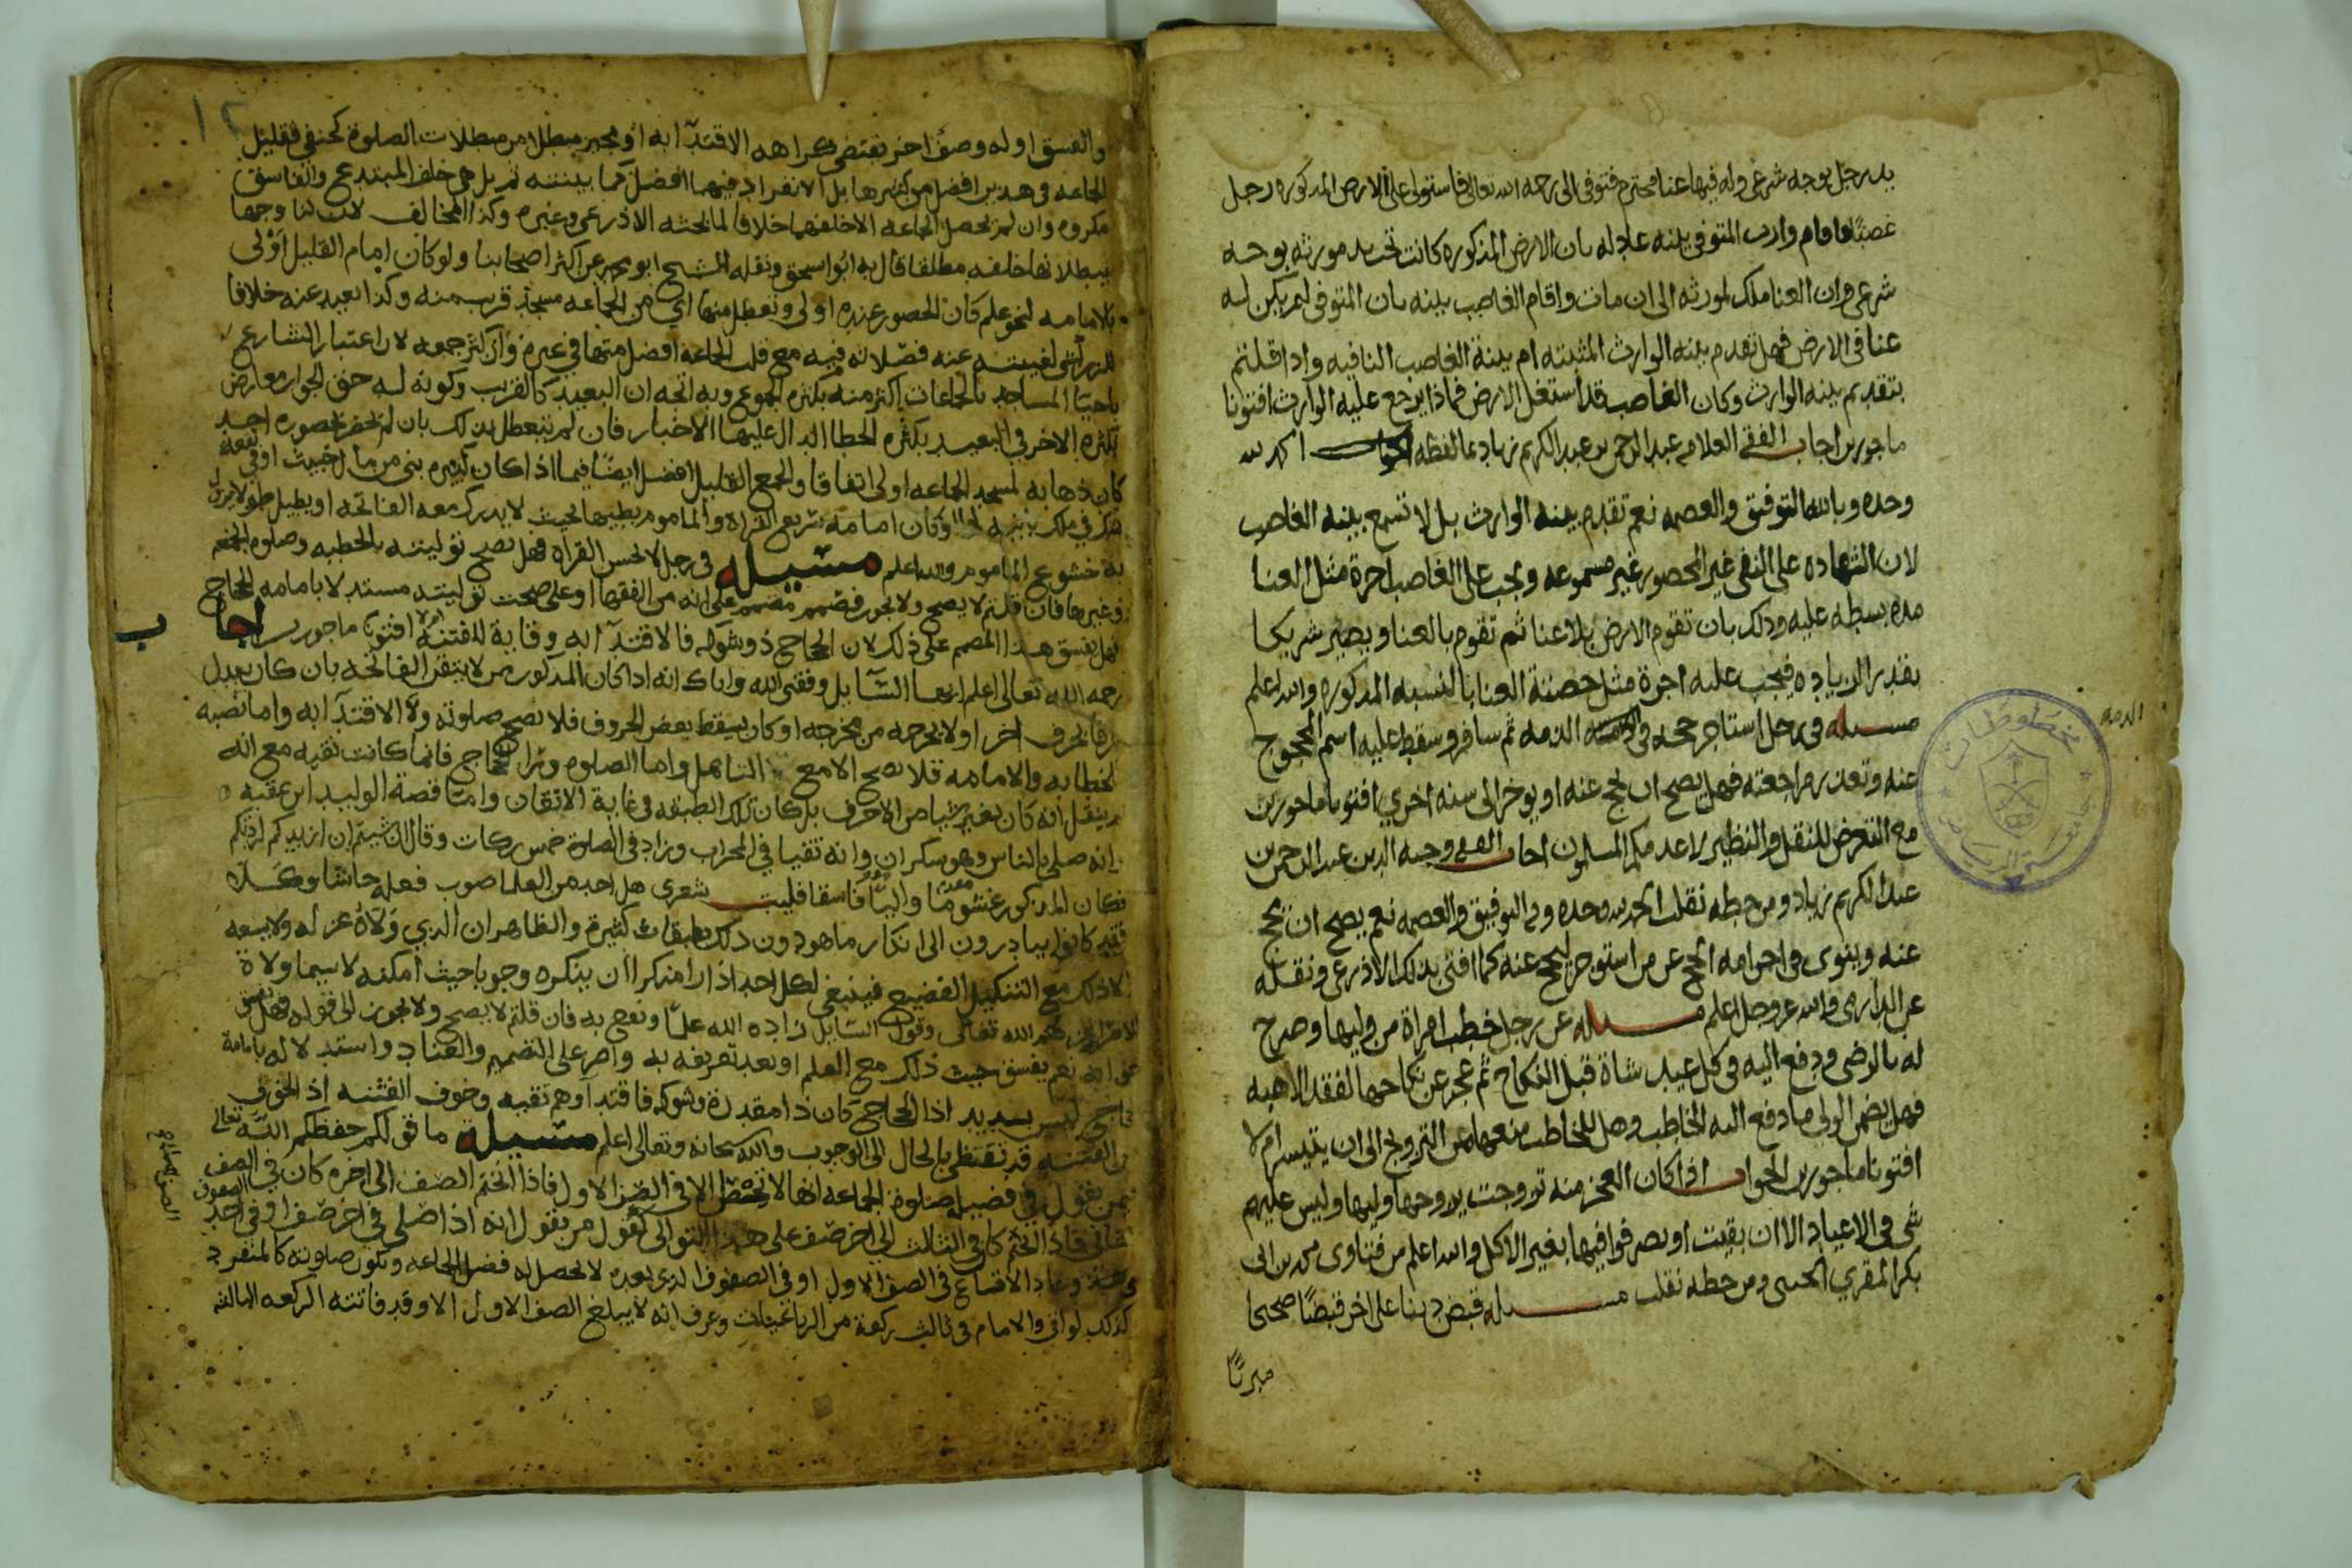 بيد رجل بوجه شرعي وله فيها عنا محترم فتوفي الى رحمة الله تعالى فاستولى على الارض المذكوره رجل
غصبًا فاقام وارث المتوفي بينه عادله بان الارض المذكوره كانت تحت يد مورثه بوجه
شرعي وان العنا ملك لمورثه الى ان مات واقام الغاصب بينه بان المتوفي لم يكن له
عنا في الارض فهل تقدم بينه الوارث المثبته ام بينة الغاصب النافيه واذا قلتم
بتقديم بينه الوارث وكان الغاصب قد استغل الارض فماذا يرجع عليه الوارث افتونا
ماجورين اجاب الفقيه العلامه عبد الرحمن بن عبد الكريم زياد بما لفظه الحمد لله
وحده وبالله التوفيق والعصمه نعم تقدم بينه الوارث بل لا تسمع بينه الغاصب
لان الشهاده على النفي غير المحصور غير مسموعه ويجب على الغاصب اجرة مثل العنا
مده بسطه عليه وذلك بان تقوم الارض بلا عنا ثم تقوم بالعنا ويصير شريكا
بقدر الزياده فيجب عليه اجرة مثل حصة العنا بالنسبه المذكوره والله اعلم
مسيله في رجل استاجر حجه في الذمه ثم سافر وسقط عليه اسم المحجوج
الذمه
عنه وتعذر مراجعته فهل يصح ان يحج عنه او يوخر الى سنه اخرى افتونا ماجورين
مع التعرض للنقل والنظير لا عدمكم المسلمون اجاب الفقيه وجيه الدين عبد الرحمن بن
عبد الكريم زياد ومن خطه نقلت الحمد لله وحده وبه التوفيق والعصمه نعم يصح ان يحج
عنه وينوي في احرامه الحج عن من استوجر ليحج عنه كما افتى بذلك الاذرعي ونقله
عن الدارمي والله عز وجل اعلم مسيله عن رجل خطب امراة من وليها وصرح
له بالرضى ودفع اليه في كل عيد شاة قبل النكاح ثم عجز عن نكاحها لفقد الاهبه
فهل يضمن الولي ما دفع اليه الخاطب وهل للخاطب منعها من التزويج الى ان يتيسر ام لا
افتونا ماجورين الجواب اذا كان العجز منه تزوجت يزوجها وليها وليس عليهم
شي في الاعياد الا ان بقيت او تصرفوا فيها بغير الاكل والله اعلم من فتاوى محمد بن ابي
بكر المقري ومن خطه نقلت مسيله قبض دينا على اخر قبضًا صحيحا
١٢
والفسق او له وصف اخر يقتضي كراهه الاقتدآ به او يجيز مبطلا من مبطلات الصلوة كحنفي فقليل
الجماعه في هذين افضل من كثيرها بل الانفراد فيهما افضل كما بينته ثم بل هي خلف المبتدع والفاسق
مكروه وان لم تحصل الجماعه الا خلفهما خلافا لما بحثه الاذرعي وغيره وكذا المخالف لان لنا وجها
ببطلانها خلفه مطلقا قال به ابو اسحق ونقله الشيخ ابو عن اكثر اصحابنا ولو كان امام القليل اولى
بالامامه لنحو علم كان الحضور عنده اولى وتعطل منها اي من الجماعه مسجد قريب منه وكذا بعيد عنه خلافا
للزركشي لغيبته عنه فصلاته فيه مع قلت الجماعه افضل منها في غيره وان كثر جمعه لان اعتبار الشارع
باحيا المساجد بالجماعات اكثر منه بكثره الجموع وبه اتجه ان البعيد كالقريب وكونه له حق الجوار معارض
بكثره الاجر في البعيد بكثره الخطا الدال عليها الاخبار فان لم يتعطل بذلك بان لم يحضر بحضوره احد
كان ذهابه لمسجد الجماعه اولى اتفاقا والجمع القليل افضل ايضًا فيما اذا كان الكثير بني من مال خبيث او في بقعه
شك في ملك وكان امامه سريع القراه والماموم بطيها بحيث لا يدرك معه الفاتحه او يطيل طولا يزول
به خشوع الماموم والله اعلم مسيله في رجل لا يحسن القراه فهل تصح توليته بالخطبه وصلوه الجمعه
وغيرها فان قلتم لا يصح ولا يجوز فصمم مصمم على انه من الفقها وعلى صحت توليته مستدلا بامامه الحجاج
فهل يفسق هذا المصمم على ذلك لان الحجاج ذو شوكه فالاقتدآ به وقاية للفتنه ام لا افتونا ماجورين اجاب
رحمه الله تعالى اعلم ايها السآيل وفقني الله واياك انه اذا كان المذكور من لا يتقن الفاتحه بان كان يبدل
حرفا بحرف اخر او لا يخرجه من مخرجه او كان يسقط بعض الحروف فلا تصح صلوته ولا الاقتدآ به واما نصبه
للخطابه والامامه فلا يصح الا مع التاهل واما الصلوه ورآ الحجاج فانها كانت تقيه مع انه
لم ينقل انه كان يغير شيا من الاحرف بل كان تلك الطبقه في غاية الاتقان وامتا قصة الوليد ابن عقبه
وانه صلى بالناس وهو سكران وانه تقيا في المحراب وزاد في الصلوة خمس ركعات وقال ان شيتم ان ازيدكم زدتكم
فكان المذكور غشوما فاسقا فليت شعري هل احد من العلما صوب فعله حاشا وكلا
فقد كانوا يبادرون الى انكار ما هو دون ذلك بطبقات كثيرة والظاهر ان الذي ولاه عزله ولا يسعه
الا ذلك مع التنكيل الفضيح فينبغي لكل احد اذا راى منكرا ان ينكره وجوبا حيث امكنه لا سيما ولاة
الامر الله تعالى وقول السايل زاده الله علما ونفع به فان قلتم لا يصح ولا يجوز الى قوله فهل يفسق
نعم يفسق حيث ذلك مع العلم او بعد تعريفه به واصر على التصميم والعناد واستدلاله بامامة
الحجاج ليس بسديد اذا الحجاج كان ذا مقدرة وشوكه فاقتداوهم تقيه وخوف الفتنه اذ الخوف
من الفتنه قد تفضي بالحال الى الوجوب والله سبحانه وتعالى اعلم مسيله ما قولكم حفظكم الله تعالى
فيمن يقول في فضيله صلوة الجماعه انها لا تحصل الا في الصف الاول فاذا التحم الصف الى اخره كان في الصف
الثاني فاذا التحم كان في الثالث الى اخر صف على هذا التوالي كقول من يقول انه اذا صلى في اخر صف او في احد الصفوف
الاتساع في الصف الاول او في الصفوف الذي بعده لا يحصل له فضل الجماعه وتكون صلوته كالمنفرد
كذلك لو اتى والامام في ثالث ركعة من الرباعيات وعرف انه لا يبلغ الصف الاول الا وقد فاتته الركعه الثالثه